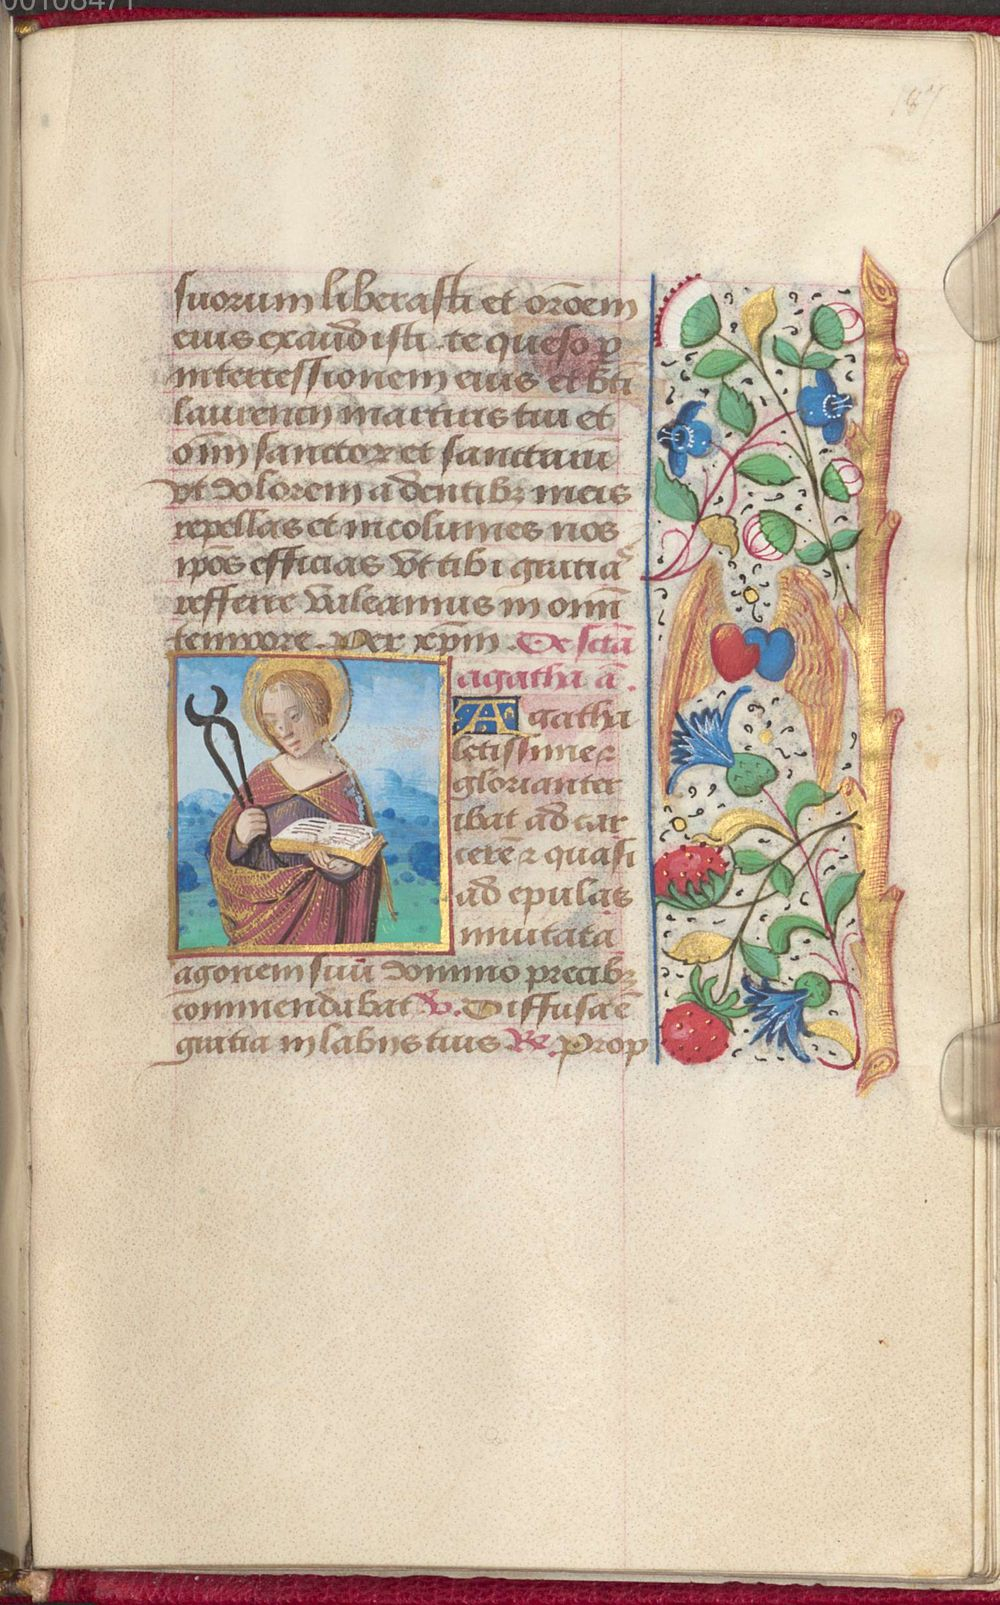 00108471
187
suorum liberasti et orōem
eius exaudisti te queso p
intercessionem eius et bt̄i
laurencij martiris tui et
oīm sanctoꝝ et sanctarū
vt dolorem a dentibꝫ meis
repellas et incolumes nos
ip̄os efficias vt tibi gratiā
refferre valeamus in omni
tempore. Per xp̄m. De sctā
agatha ā.
Agatha
letissime ⁊
glorianter
ibat ad car
cerē ⁊ quasi
ad epulas
inuitata
agonem suū domino precibꝫ
commendabat ℣. Diffusa ē
gratia in labijs tuis ℟. Prop